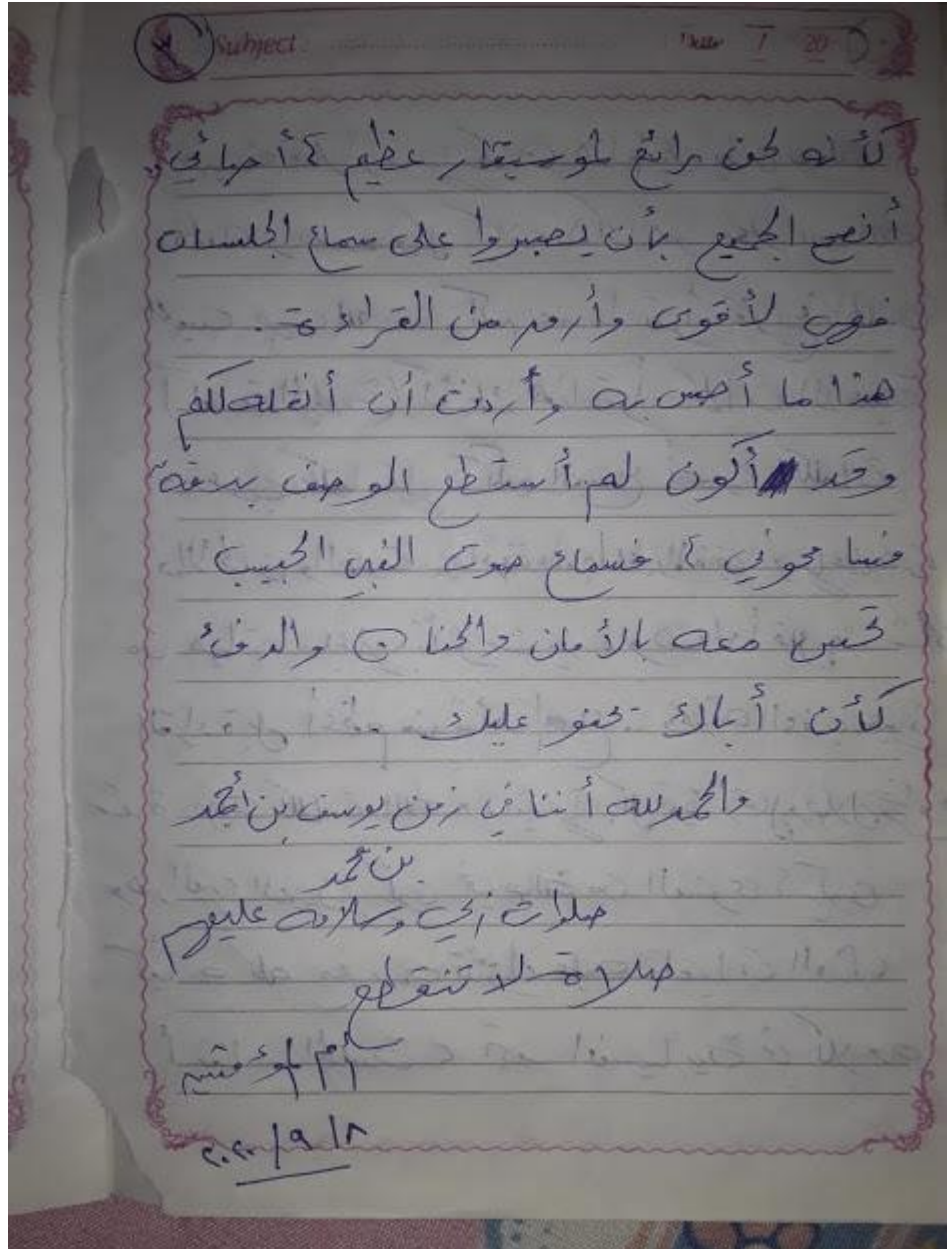 Subject: Date / 20
كأنه لحن رائع لموسيقار عظيم ، أحبائي..
أنصح الجميع بأن يصبروا على سماع الجلسات
فهي لأقوى وأروع من القراءة .
هذا ما أحس به وأردت أن أنقله لكم
وقد أكون لم أستطع الوصف بدقة
فسامحوني ، فسماع صوت النبي الحبيب
تحس معه بالأمان والحنان والدفئ
كأن أباك يحنو عليك
والحمد لله أننا في زمن يوسف بن أحمد
بن محمد
صلوات ربي وسلامه عليهم
صلاة لا تنقطع
٢٠٢٠/٩/٨